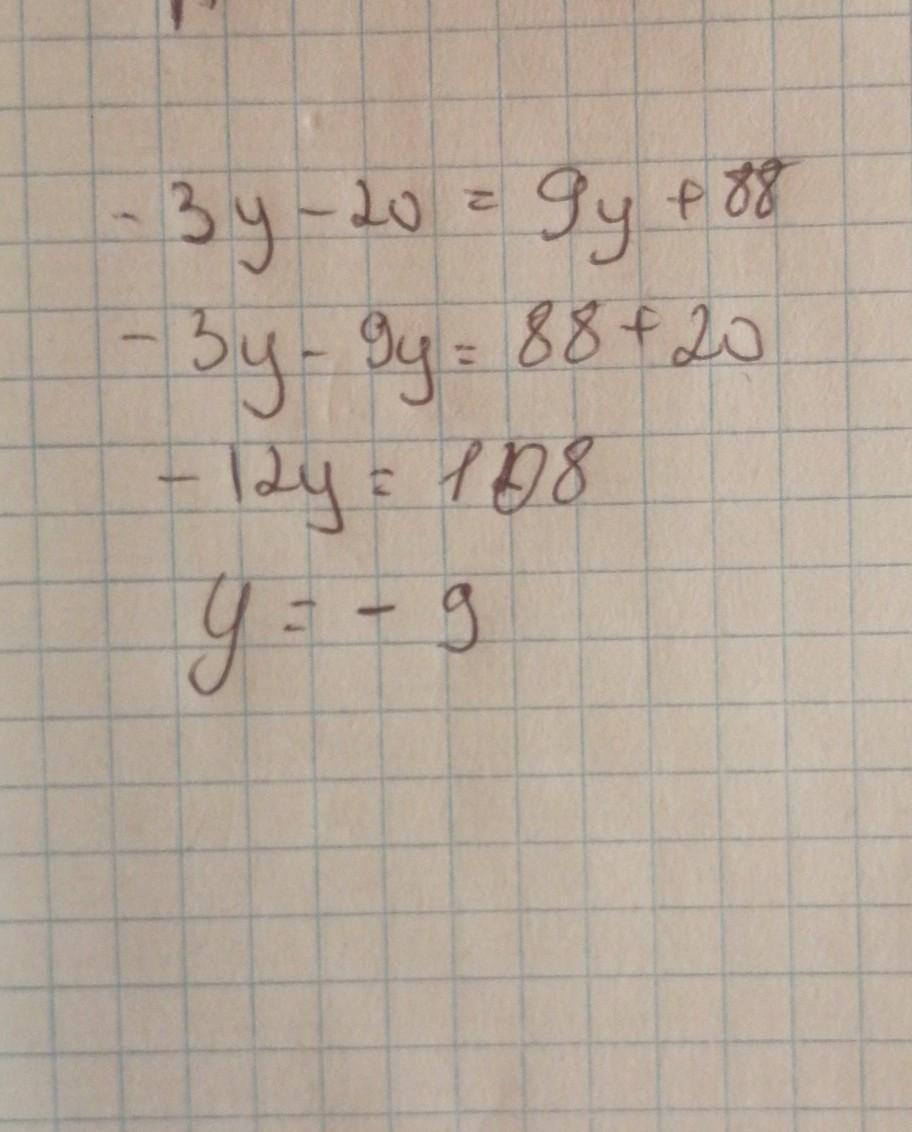 - 3y - 20 = 9y + 88
- 3y - 9y = 88 + 20
- 12y = 108
y = - 9